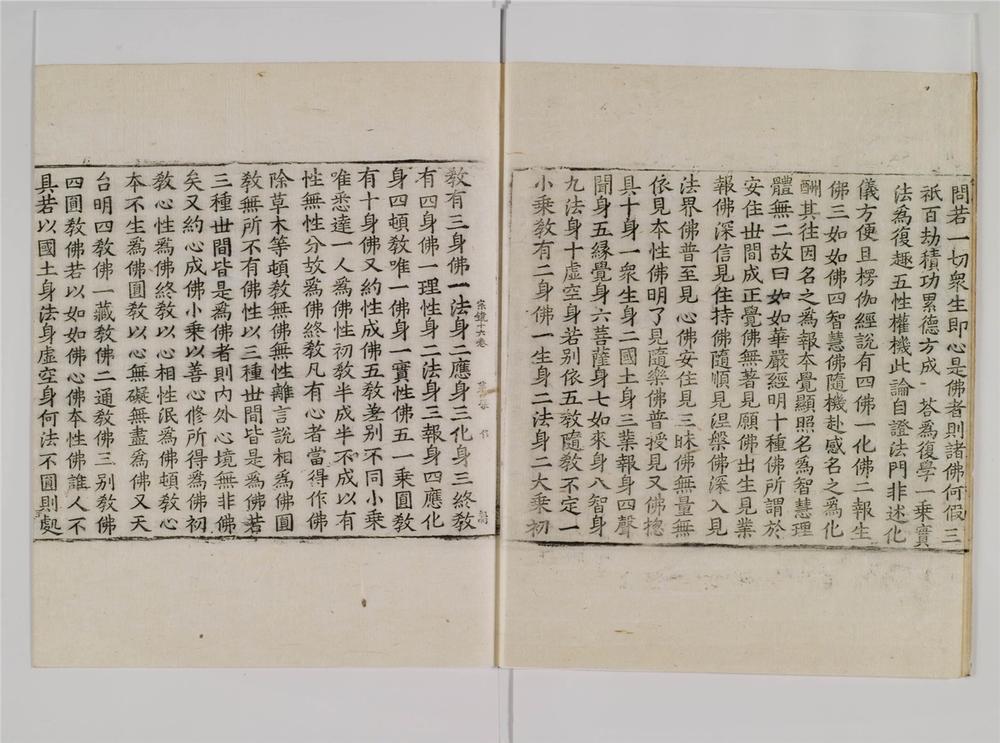 問若一切衆生即心是佛者則諸佛何假三
祇百劫積功累德方成 荅爲復學一乗實
法爲復趣五性權機此論自證法門非述化
儀方便且楞伽經說有四佛一化佛二報生
佛三如如佛四智慧佛隨機赴感名之爲化
酬其往因名之爲報本覺顯照名爲智慧理
體無二故曰如如華嚴經明十種佛所謂於
安住世間成正覺佛無著見願佛出生見業
報佛深信見住持佛隨順見涅槃佛深入見
法界佛普至見心佛安住見三昧佛無量無
依見本性佛明了見隨樂佛普授見又佛揔
具十身一衆生身二國土身三業報身四聲
聞身五緣覺身六菩薩身七如來身八智身
九法身十虛空身若別依五教隨教不定一
小乗教有二身佛一生身二法身二大乗初
教有三身佛一法身二應身三化身三終教
有四身佛一理性身二法身三報身四應化
身四頓教唯一佛身一實性佛五一乗圓教
有十身佛又約性成佛五教差别不同小乗
唯悉達一人爲佛性初教半成半不成以有
性無性分故爲佛終教凡有心者當得作佛
除草木等頓教無佛無性離言說相爲佛圓
教無所不有佛性以三種世間皆是爲佛若
三種世間皆是爲佛者則内外心境無非佛
矣又約心成佛小乗以善心修所得爲佛初
教心性爲佛終教以心相性泯爲佛頓教心
本不生爲佛圓教以心無礙無盡爲佛又天
台明四教佛一藏教佛二通教佛三别教佛
四圓教佛若以如如佛心佛本性佛誰人不
具若以國土身法身虛空身何法不圓則處